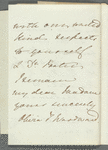 with our united
kind respects
to yourself
& Dr Porter,
I remain
my dear Madam
yours sincerely
Olivia I. Woodward